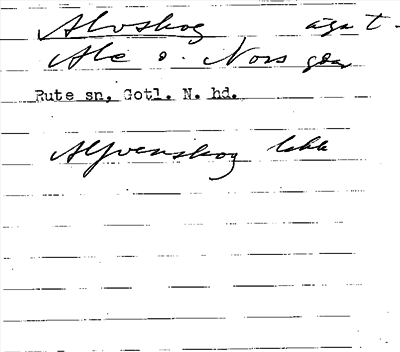 Alvskog äga t.
Ale o. Nors gdr
Rute sn, Gotl. N. hd.
Alfvenskog